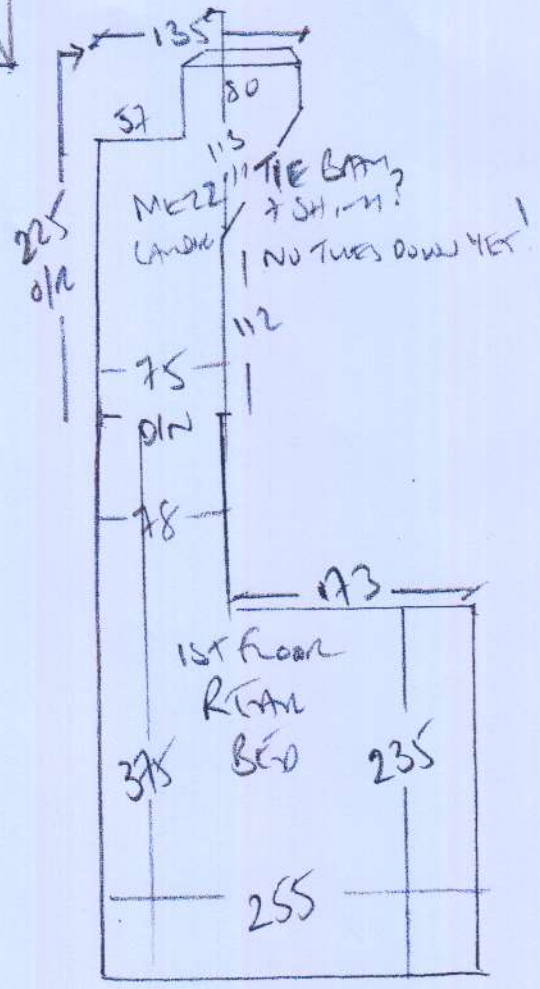 135
80
57
113
MEZZ
LANDING
TILE
?
NO TILES DOWN YET!
225
O/R
112
75
D/N
78
173
1ST FLOOR
REAR
BED
375
235
255